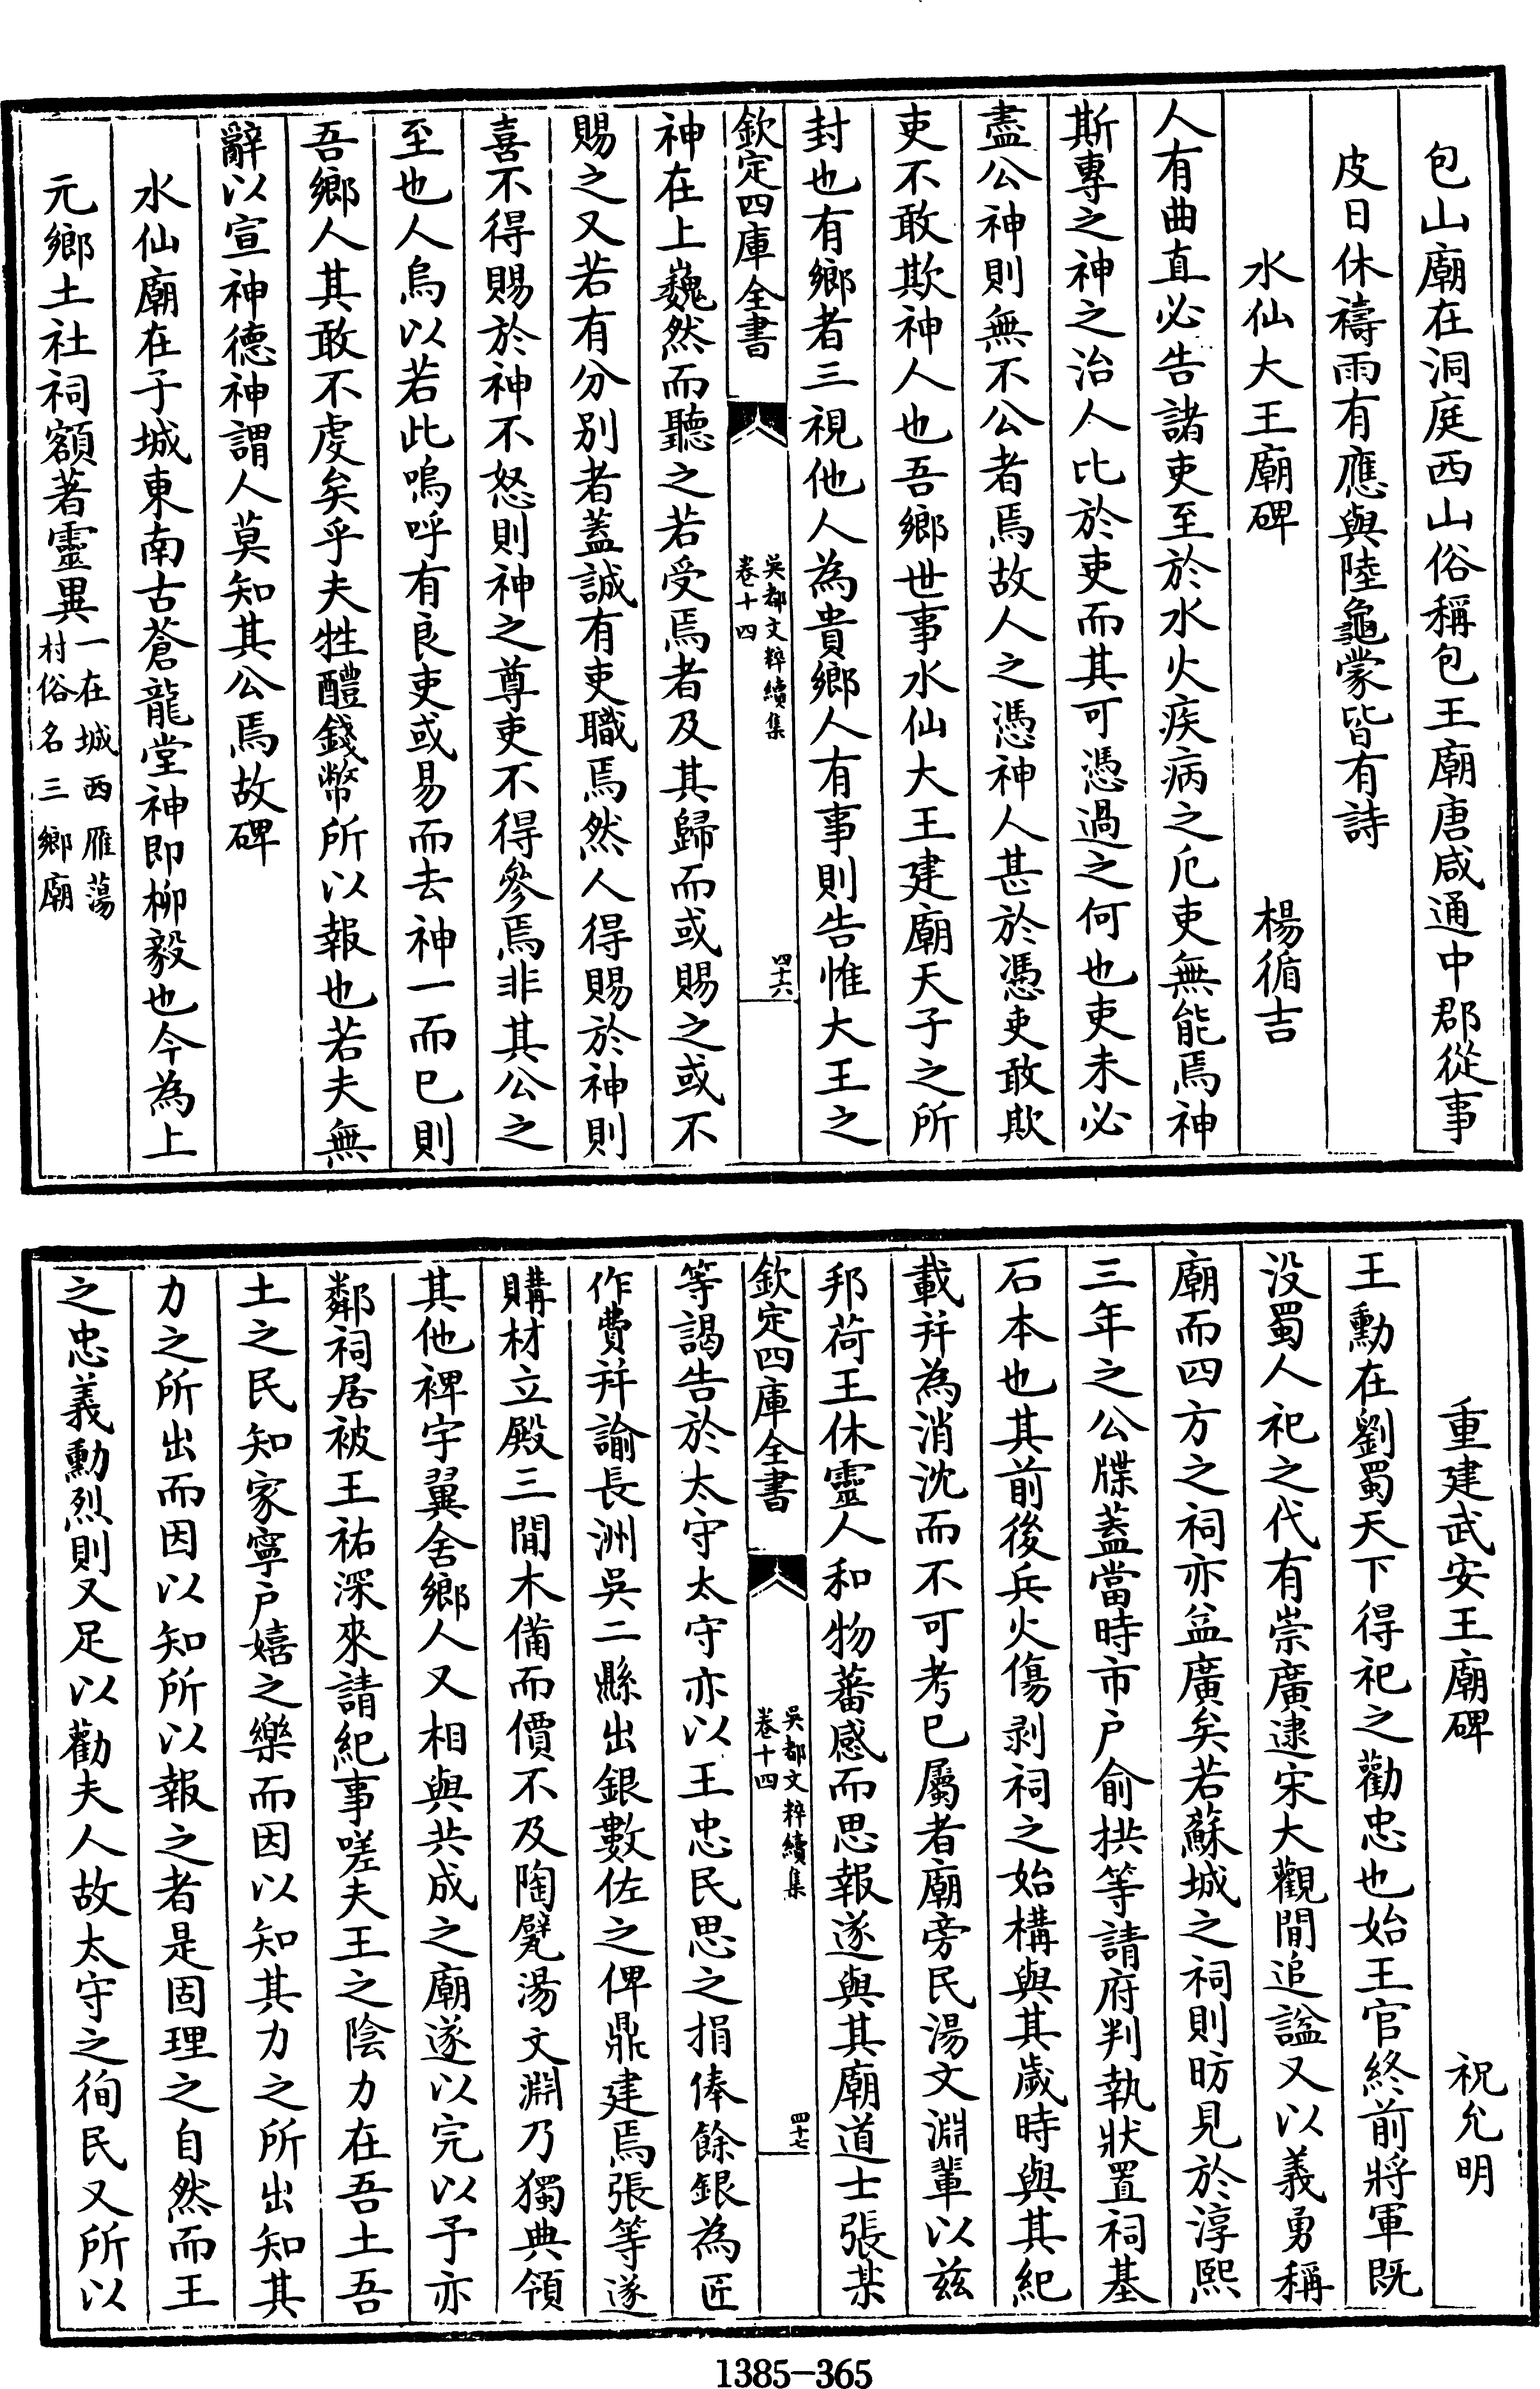 包山廟在洞庭西山俗稱包王廟唐咸通中郡從事
皮日休禱雨有應與陸龜蒙皆有詩
水仙大王廟碑　楊循吉
人有曲直必告諸吏至於水火疾病之厄吏無能焉神
斯專之神之治人比於吏而其可憑過之何也吏未必
盡公神則無不公者焉故人之憑神人甚於憑吏敢欺
吏不敢欺神人也吾鄉世事水仙大王建廟天子之所
封也有鄉者三視他人為貴鄉人有事則告惟大王之
欽定四庫全書
吳都文粹續集
卷十四
四十六
神在上巍然而聽之若受焉者及其歸而或賜之或不
賜之又若有分別者蓋誠有吏職焉然人得賜於神則
喜不得賜於神不怒則神之尊吏不得參焉非其公之
至也人烏以若此嗚呼有良吏或易而去神一而已則
吾鄉人其敢不虔矣乎夫牲醴錢幣所以報也若夫無
辭以宣神德神謂人莫知其公焉故碑
水仙廟在子城東南古蒼龍堂神即柳毅也今為上
元鄉土社祠額著靈異一在城西雁蕩
村俗名三鄉廟
重建武安王廟碑　祝允明
王勳在劉蜀天下得祀之勸忠也始王官終前將軍既
没蜀人祀之代有崇廣逮宋大觀間追謚又以義勇稱
廟而四方之祠亦益廣矣若蘇城之祠則昉見於淳熙
三年之公牒蓋當時市户俞拱等請府判執狀置祠基
石本也其前後兵火傷剥祠之始構與其歲時與其紀
載并為消沈而不可考已屬者廟旁民湯文淵輩以兹
邦荷王休靈人和物蕃感而思報遂與其廟道士張某
欽定四庫全書
吳都文粹續集
卷十四
四十七
等謁告於太守太守亦以王忠民思之捐俸餘銀為匠
作費并諭長洲吳二縣出銀數佐之俾鼎建焉張等遂
購材立殿三間木備而價不及陶甓湯文淵乃獨典領
其他裨宇翼舍鄉人又相與共成之廟遂以完以予亦
鄰祠居被王祐深來請紀事嗟夫王之陰力在吾土吾
土之民知家寧户嬉之樂而因以知其力之所出知其
力之所出而因以知所以報之者是固理之自然而王
之忠義勳烈則又足以勸夫人故太守之徇民又所以
1385-365